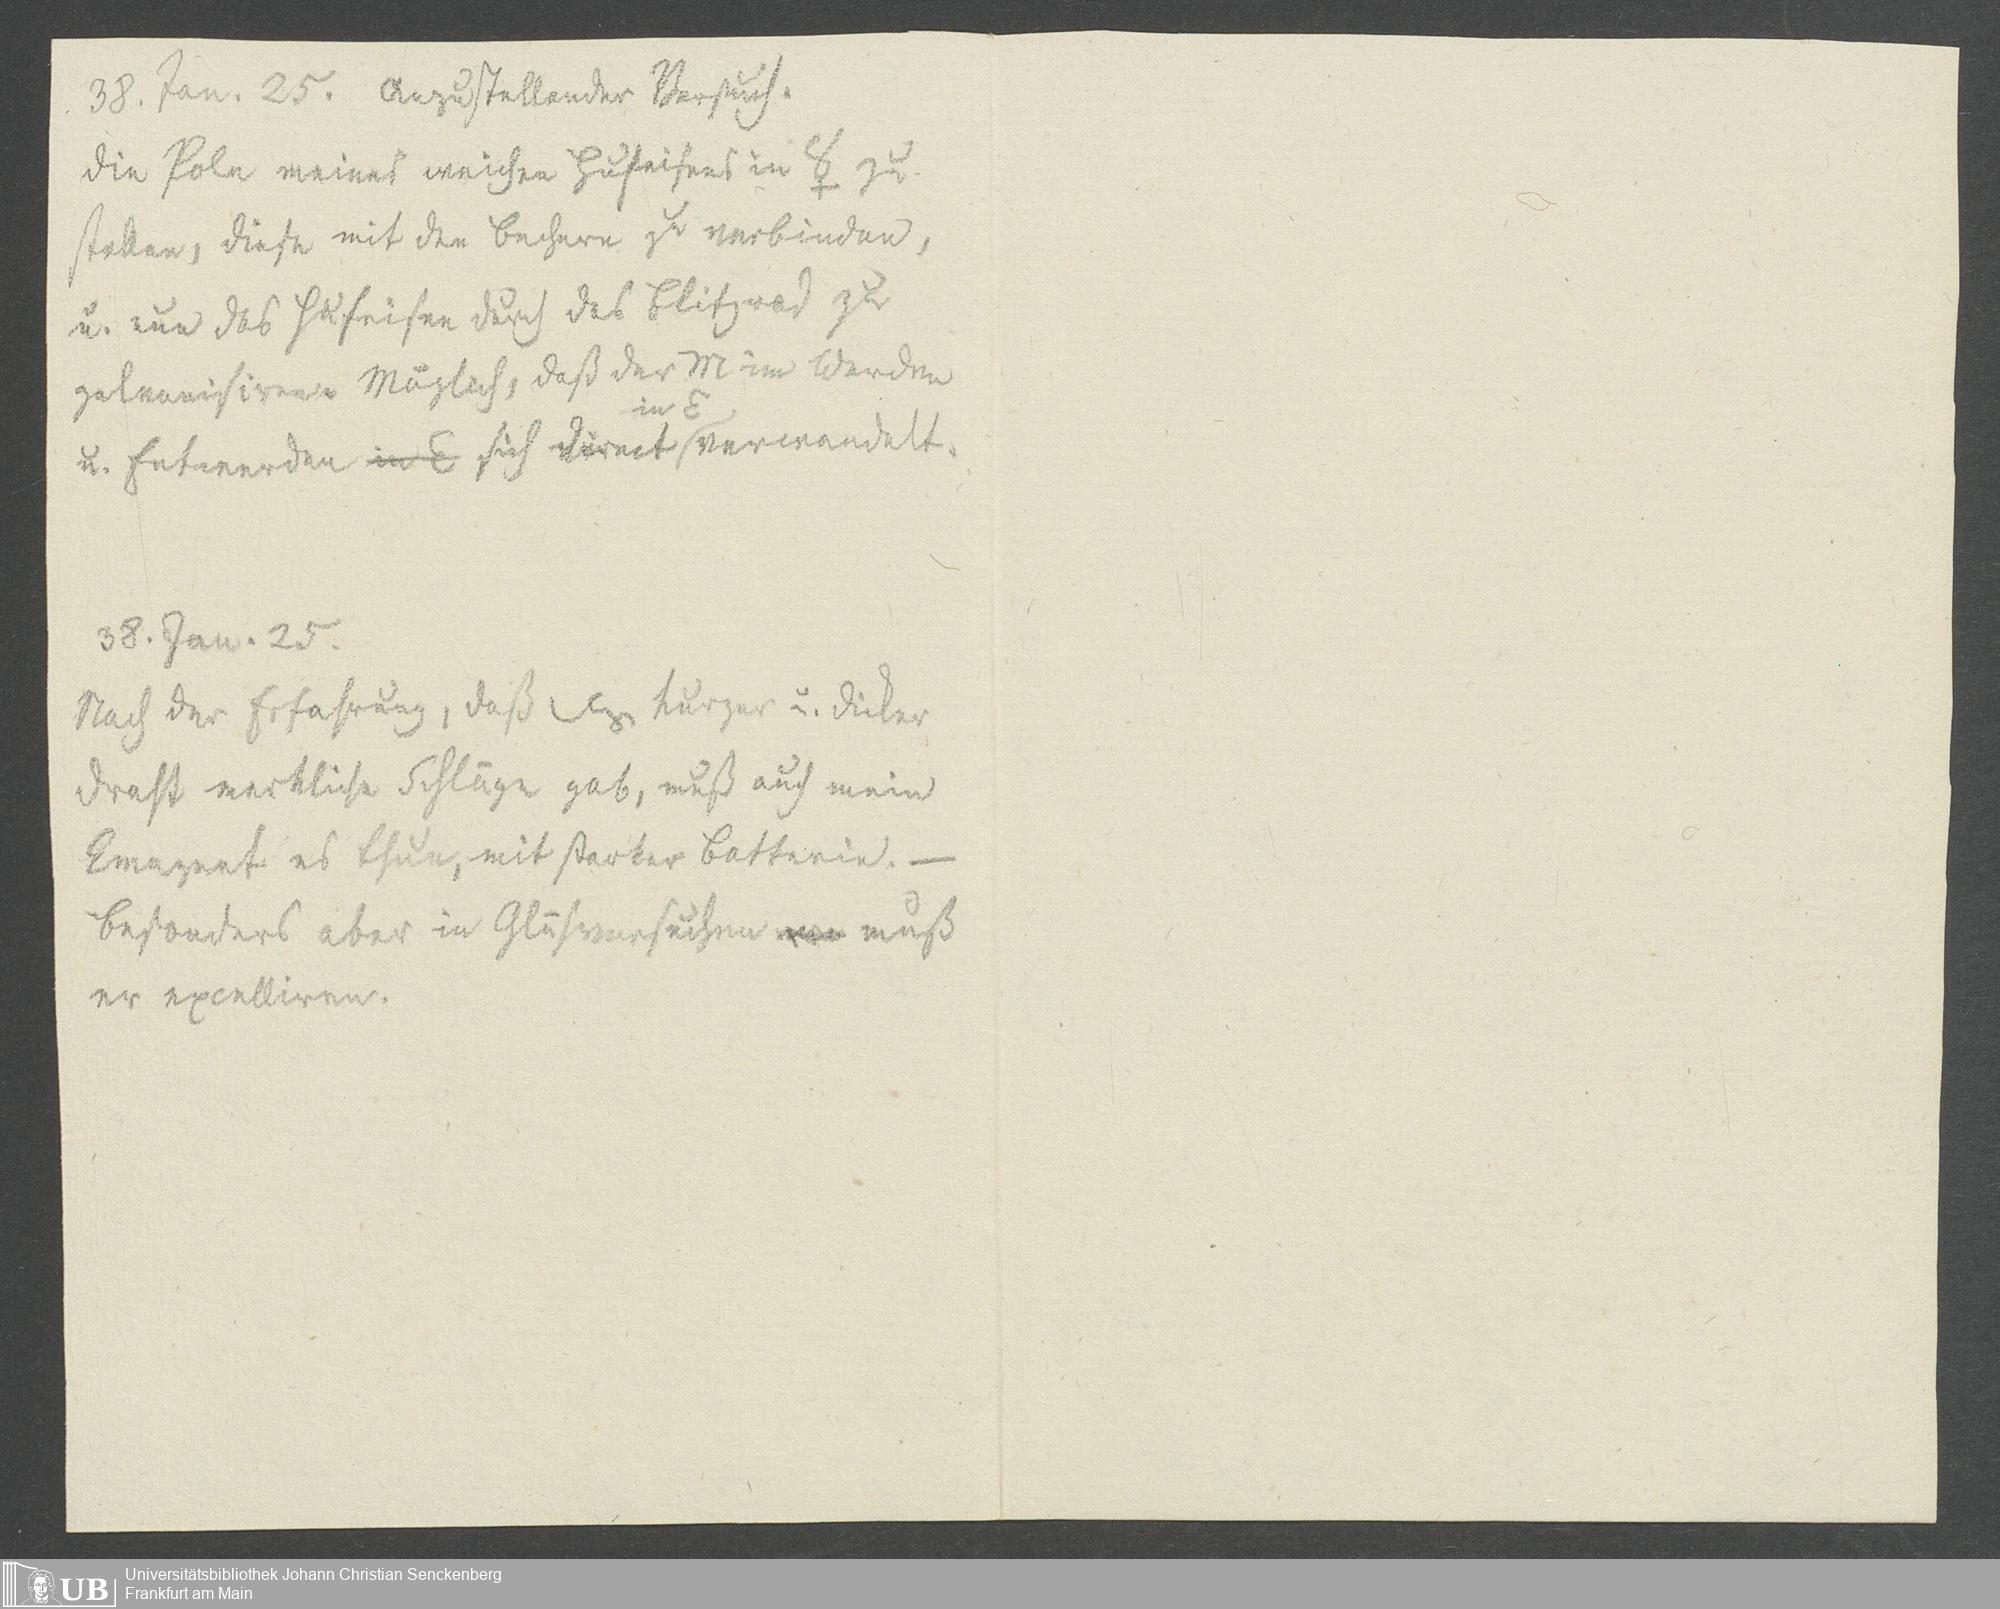 38. Jan. 25. Anzustellender Versuch.
die Pole meines weichen Hufeisens in ☿ zu
stellen, diese mit den Bechern zu verbinden,
u. nun das Hufeisen durch das Blitzrad zu
galvanisiren. Möglich, daß der M im Werden
in E
u. Entwerden in E sich direct verwandelt.
38. Jan. 25.
Nach der Erfahrung, daß kurzer u. dicker
Draht merkliche Schläge gab, muß auch mein
Emagnet es thun, mit starker Batterie. —
Besonders aber in Glühversuchen muß
er excelliren.
UB
Universitätsbibliothek Johann Christian Senckenberg
Frankfurt am Main